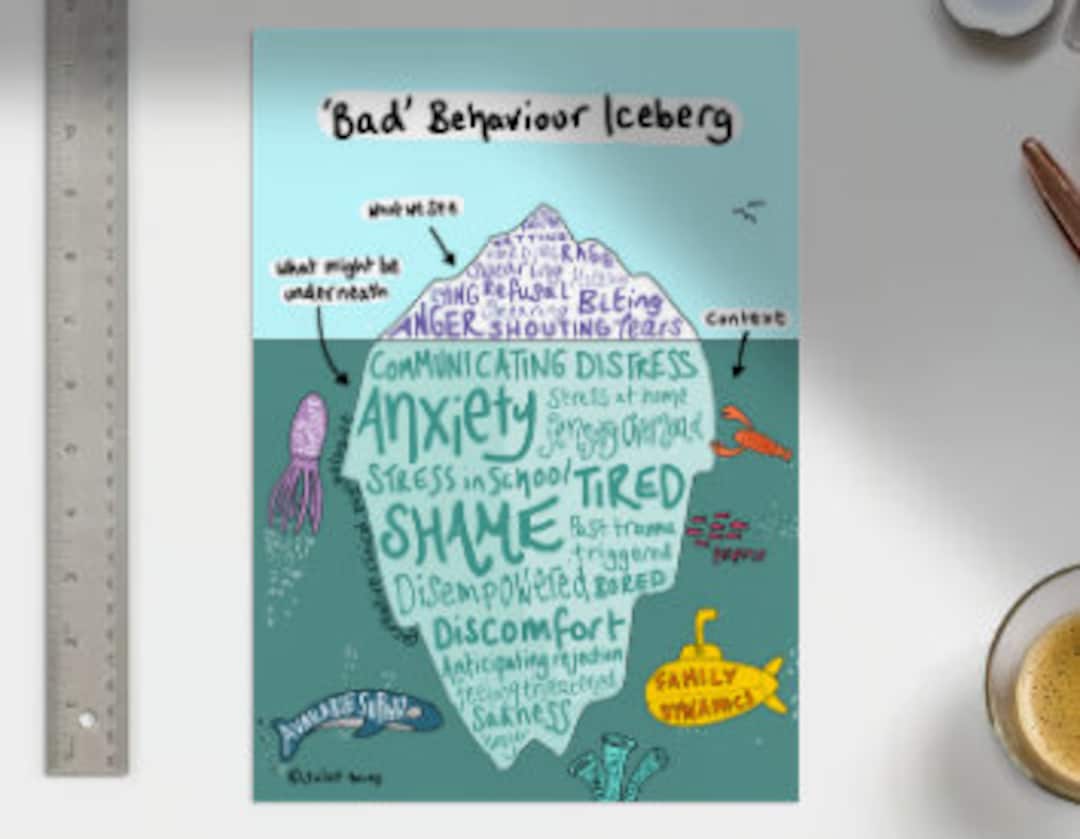 'Bad' Behaviour Iceberg
What we see
What might be
underneath
Context
RAGE
Swearing
LYING Refusal Biting
ANGER SHOUTING Tears
COMMUNICATING DISTRESS
Anxiety
Stress at home
Sensory Overload
STRESS in School TIRED
SHAME
Past trauma
triggered
Disempowered BORED
Discomfort
Anticipating rejection
feeling threatened
Sadness
FAMILY
DYNAMICS
AVAILABLE SUPPORT